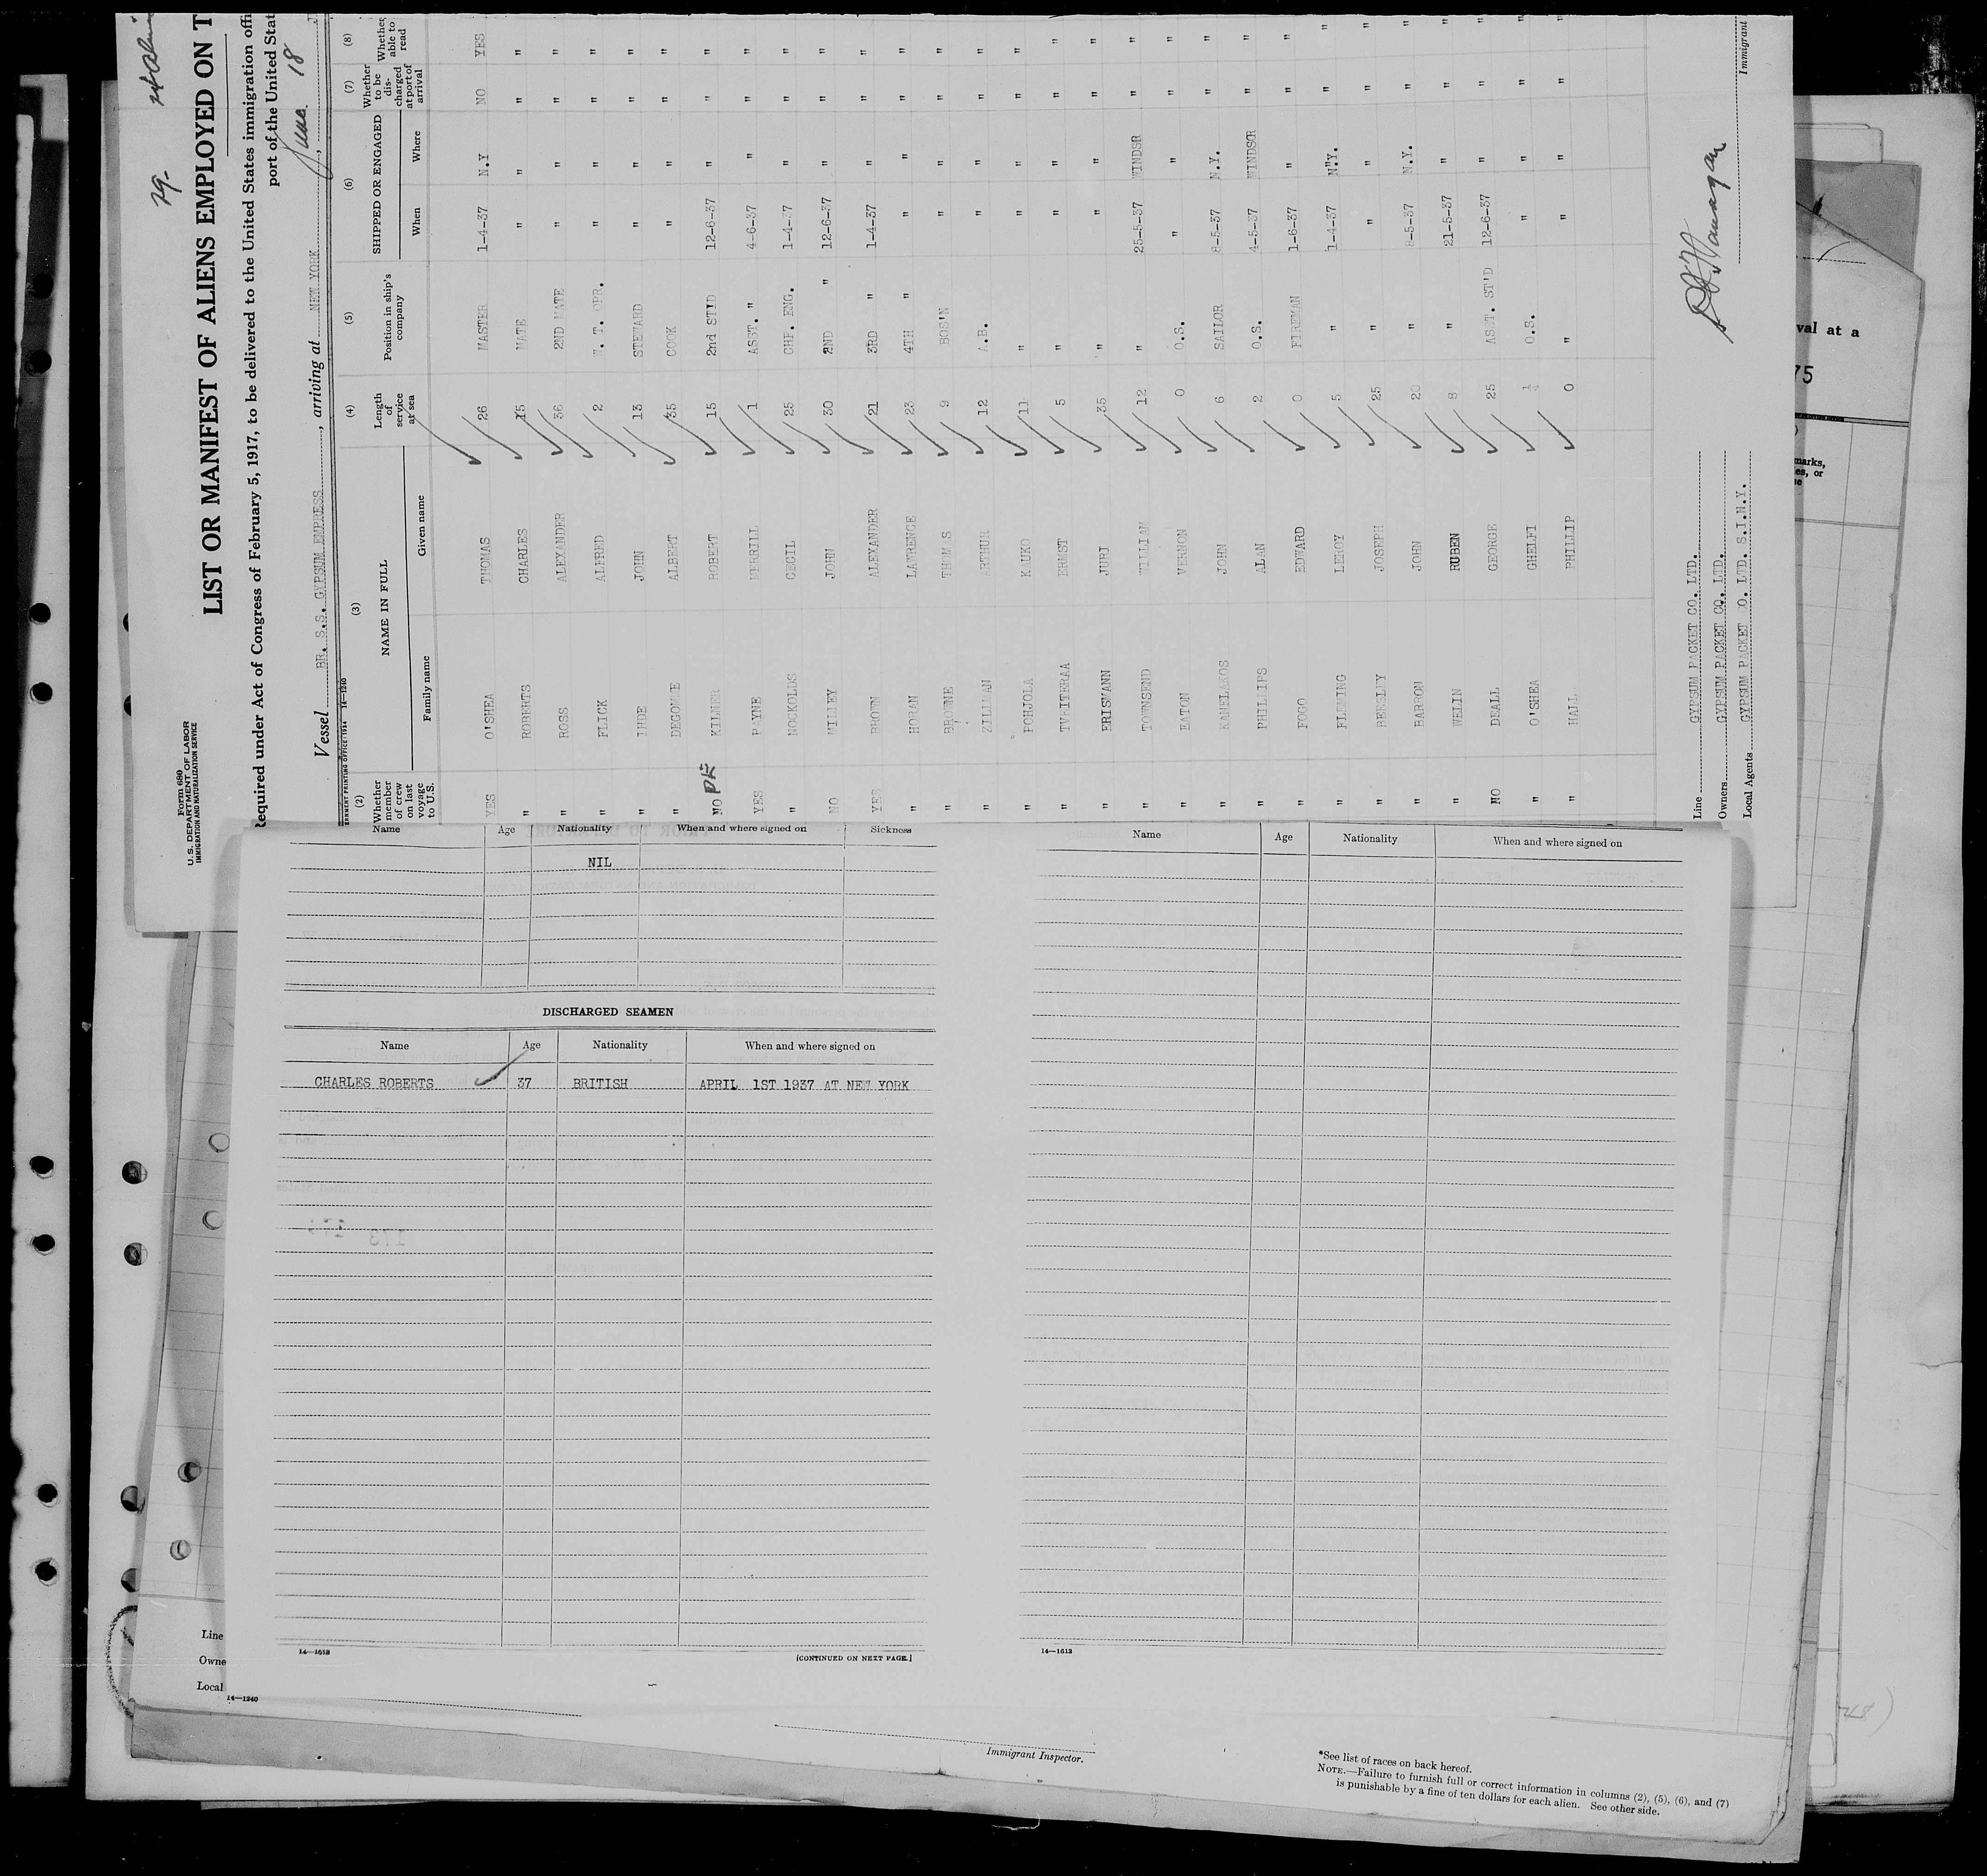 Form 680
U.S. DEPARTMENT OF LABOR
IMMIGRATION AND NATURALIZATION SERVICE
29.
LIST OR MANIFEST OF ALIENS EMPLOYED ON T
Required under Act of Congress of February 5, 1917, to be delivered to the United States immigration offi
port of the United Stat
Vessel BR. S.S. GYPSUM EMPRESS, arriving at NEW YORK, June 18
14—1240
(2) Whether member of crew on last voyage to U.S.
(3) NAME IN FULL
Family name Given name
(4) Length of service at sea
(5) Position in ship's company
(6) SHIPPED OR ENGAGED
When Where
(7) Whether to be discharged at port of arrival
(8) Whether able to read
YES O'SHEA THOMAS 26 MASTER 1-4-37 N.Y NO YES
" ROBERTS CHARLES 15 MATE " " " "
" ROSS ALEXANDER 36 2ND MATE " " " "
" FLICK ALFRED 2 W. T. OPR. " " " "
" IHDE JOHN 13 STEWARD " " " "
" ALBERT 35 COOK " " " "
NO KILNER ROBERT 15 2nd STD 12-6-37 " " "
YES PAYNE MERRILL 1 ASST. " 4-6-37 " " "
" NOCKOLDS CECIL 25 CHF. ENG. 1-4-37 " " "
NO MILLEY JOHN 30 2ND " 12-6-37 " " "
YES BROWN ALEXANDER 21 3RD " 1-4-37 " " "
" HORAN LAWRENCE 23 4TH " " " " "
" BROWNE THOMAS 9 BOS'N " " " "
" ZILLMAN ARTHUR 12 A.B. " " " "
" POHJOLA KAUKO 11 " " " " "
" ERNST 5 " " " " "
" ERISMANN JURI 35 " " " " "
" TOWNSEND WILLIAM 12 " 25-5-37 WINDSR " "
" EATON VERNON 0 O.S. " " " "
" KANELAKOS JOHN 6 SAILOR 8-5-37 N.Y. " "
" PHILLIPS ALAN 2 O.S. 4-5-37 WINDSOR " "
" FOGO EDWARD 0 FIREMAN 1-6-37 " " "
" FLEMING LEROY 5 " 1-4-37 N.Y. " "
" BEESLEY JOSEPH 25 " " " " "
" BARRON JOHN 20 " 8-5-37 N.Y. " "
" WELIN RUBEN 8 " 21-5-37 " " "
NO DEALL GEORGE 25 ASST. ST'D 12-6-37 " " "
" O'SHEA GHELFI 1/4 O.S. " " " "
" HALL PHILLIP 0 " " " " "
Line GYPSUM PACKET CO. LTD.
Owners GYPSUM PACKET CO. LTD.
Local Agents GYPSUM PACKET CO. LTD. S.I.N.Y.
Immigrant
Name Age Nationality When and where signed on Sickness
NIL
DISCHARGED SEAMEN
Name Age Nationality When and where signed on
CHARLES ROBERTS 37 BRITISH APRIL 1ST 1937 AT NEW YORK
14—1613
[CONTINUED ON NEXT PAGE.]
Name Age Nationality When and where signed on
14—1613
val at a
75
marks,
es, or
se
Line
Owne
Local
14—1240
Immigrant Inspector.
*See list of races on back hereof.
NOTE.—Failure to furnish full or correct information in columns (2), (5), (6), and (7)
is punishable by a fine of ten dollars for each alien. See other side.